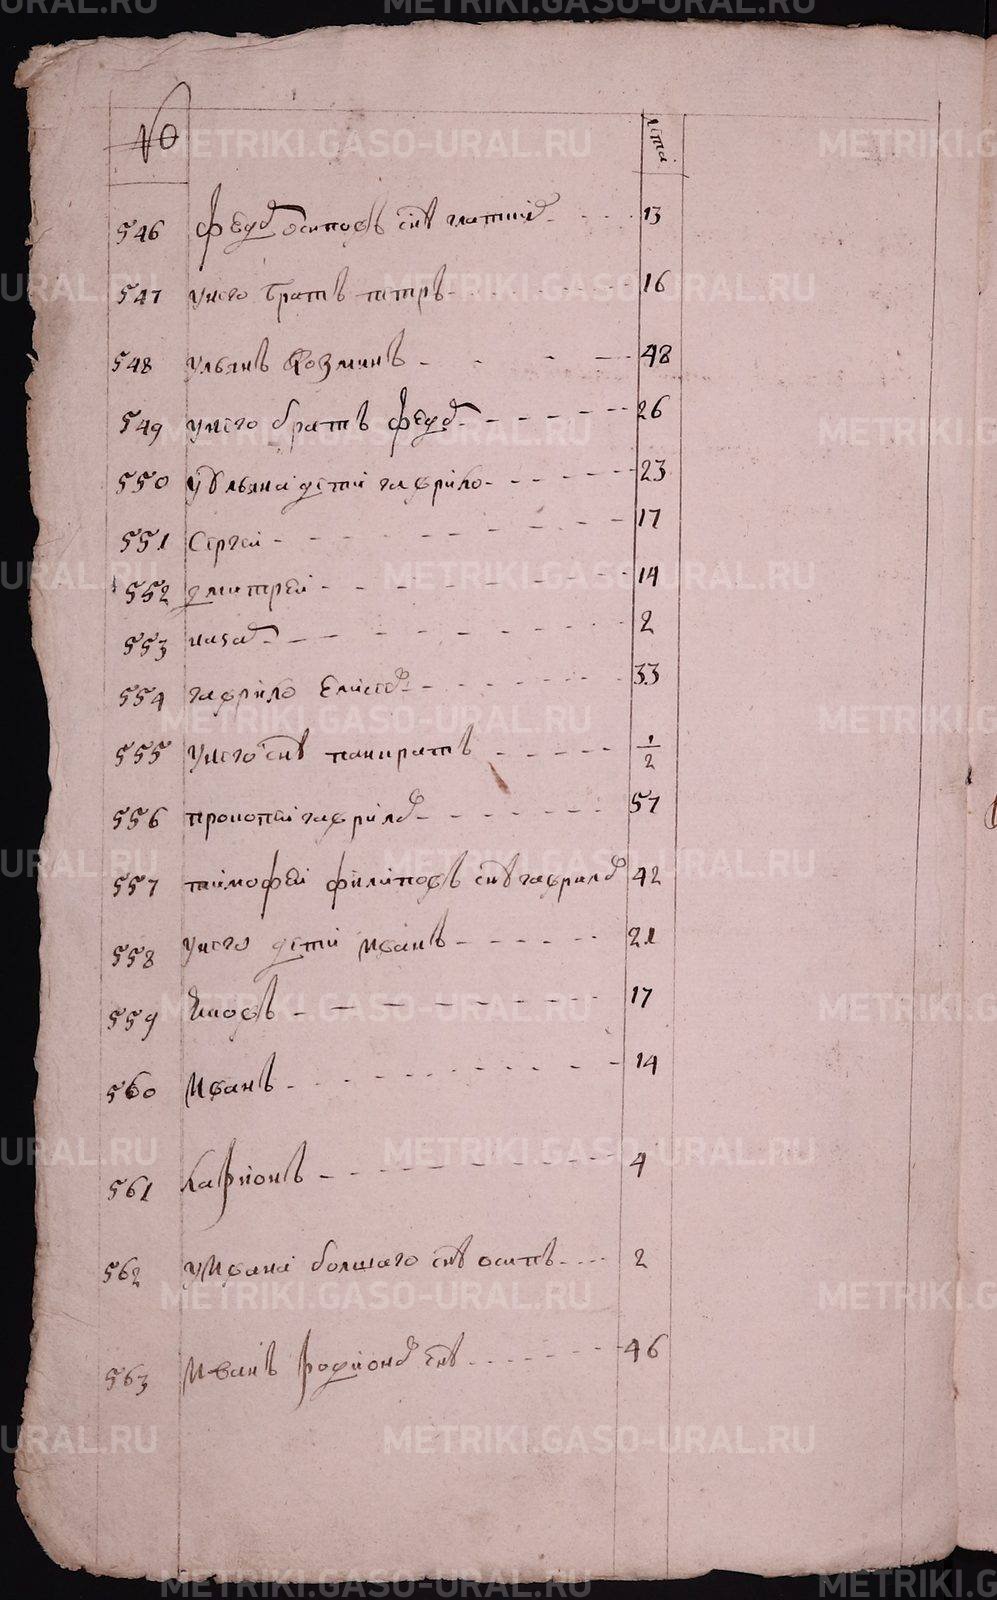 № лета
546 Федоръ осиповъ снъ 13
547 унего братъ петръ 16
548 ульянъ козминъ 48
549 унего братъ федоръ 26
550 уульяна дети гаврило 23
551 Сергеи 17
552 дмитреи 14
553 назаръ 2
554 гаврило Елисеевъ 33
555 унего снъ панкратъ 1/2
556 прокопеи гавриловъ 57
557 тимофеи филиповъ снъ гавриловъ 42
558 унего дети иванъ 21
559 Яковъ 17
560 Иванъ 14
561 Ларионъ 4
562 уивана болшаго снъ осипъ 2
563 Иванъ родионовъ снъ 46
METRIKI.GASO-URAL.RU